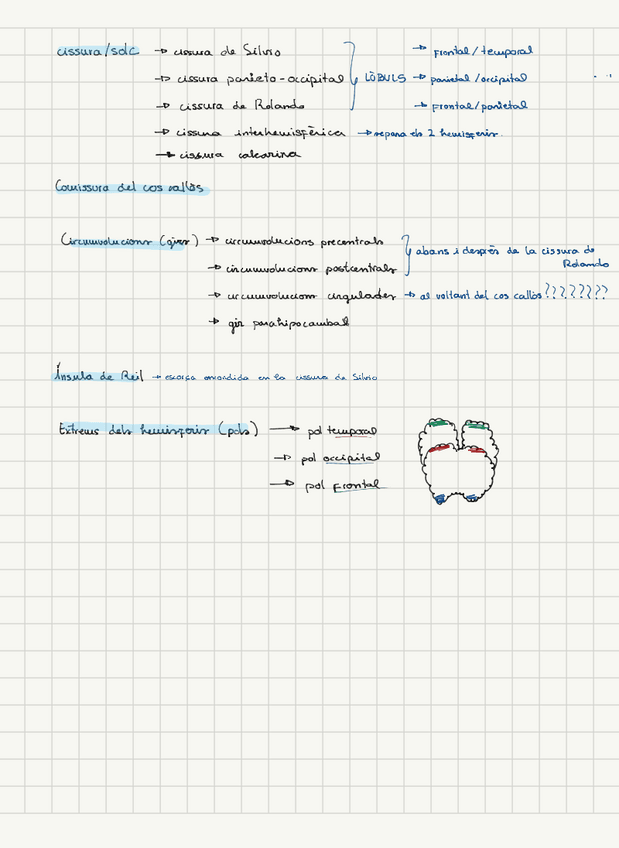 cissura/solc → cissura de Silvio } LÒBULS → Frontal/temporal
→ cissura parieto-occipital → parietal/occipital
→ cissura de Rolando → Frontal/parietal
→ cissura interhemisfèrica → separa els 2 hemisferis.
→ cissura calcarina
Comissura del cos callós
Circumvolucions (girs) → circumvolucions precentrals } abans i després de la cissura de Rolando
→ circumvolucions postcentrals
→ circumvolucions cingulades → al voltant del cos callós????????
→ gir parahipocampal
Ínsula de Reil → escorça amondida en la cissura de Silvio
Extrems dels hemisferis (pols) → pol temporal
→ pol occipital
→ pol Frontal